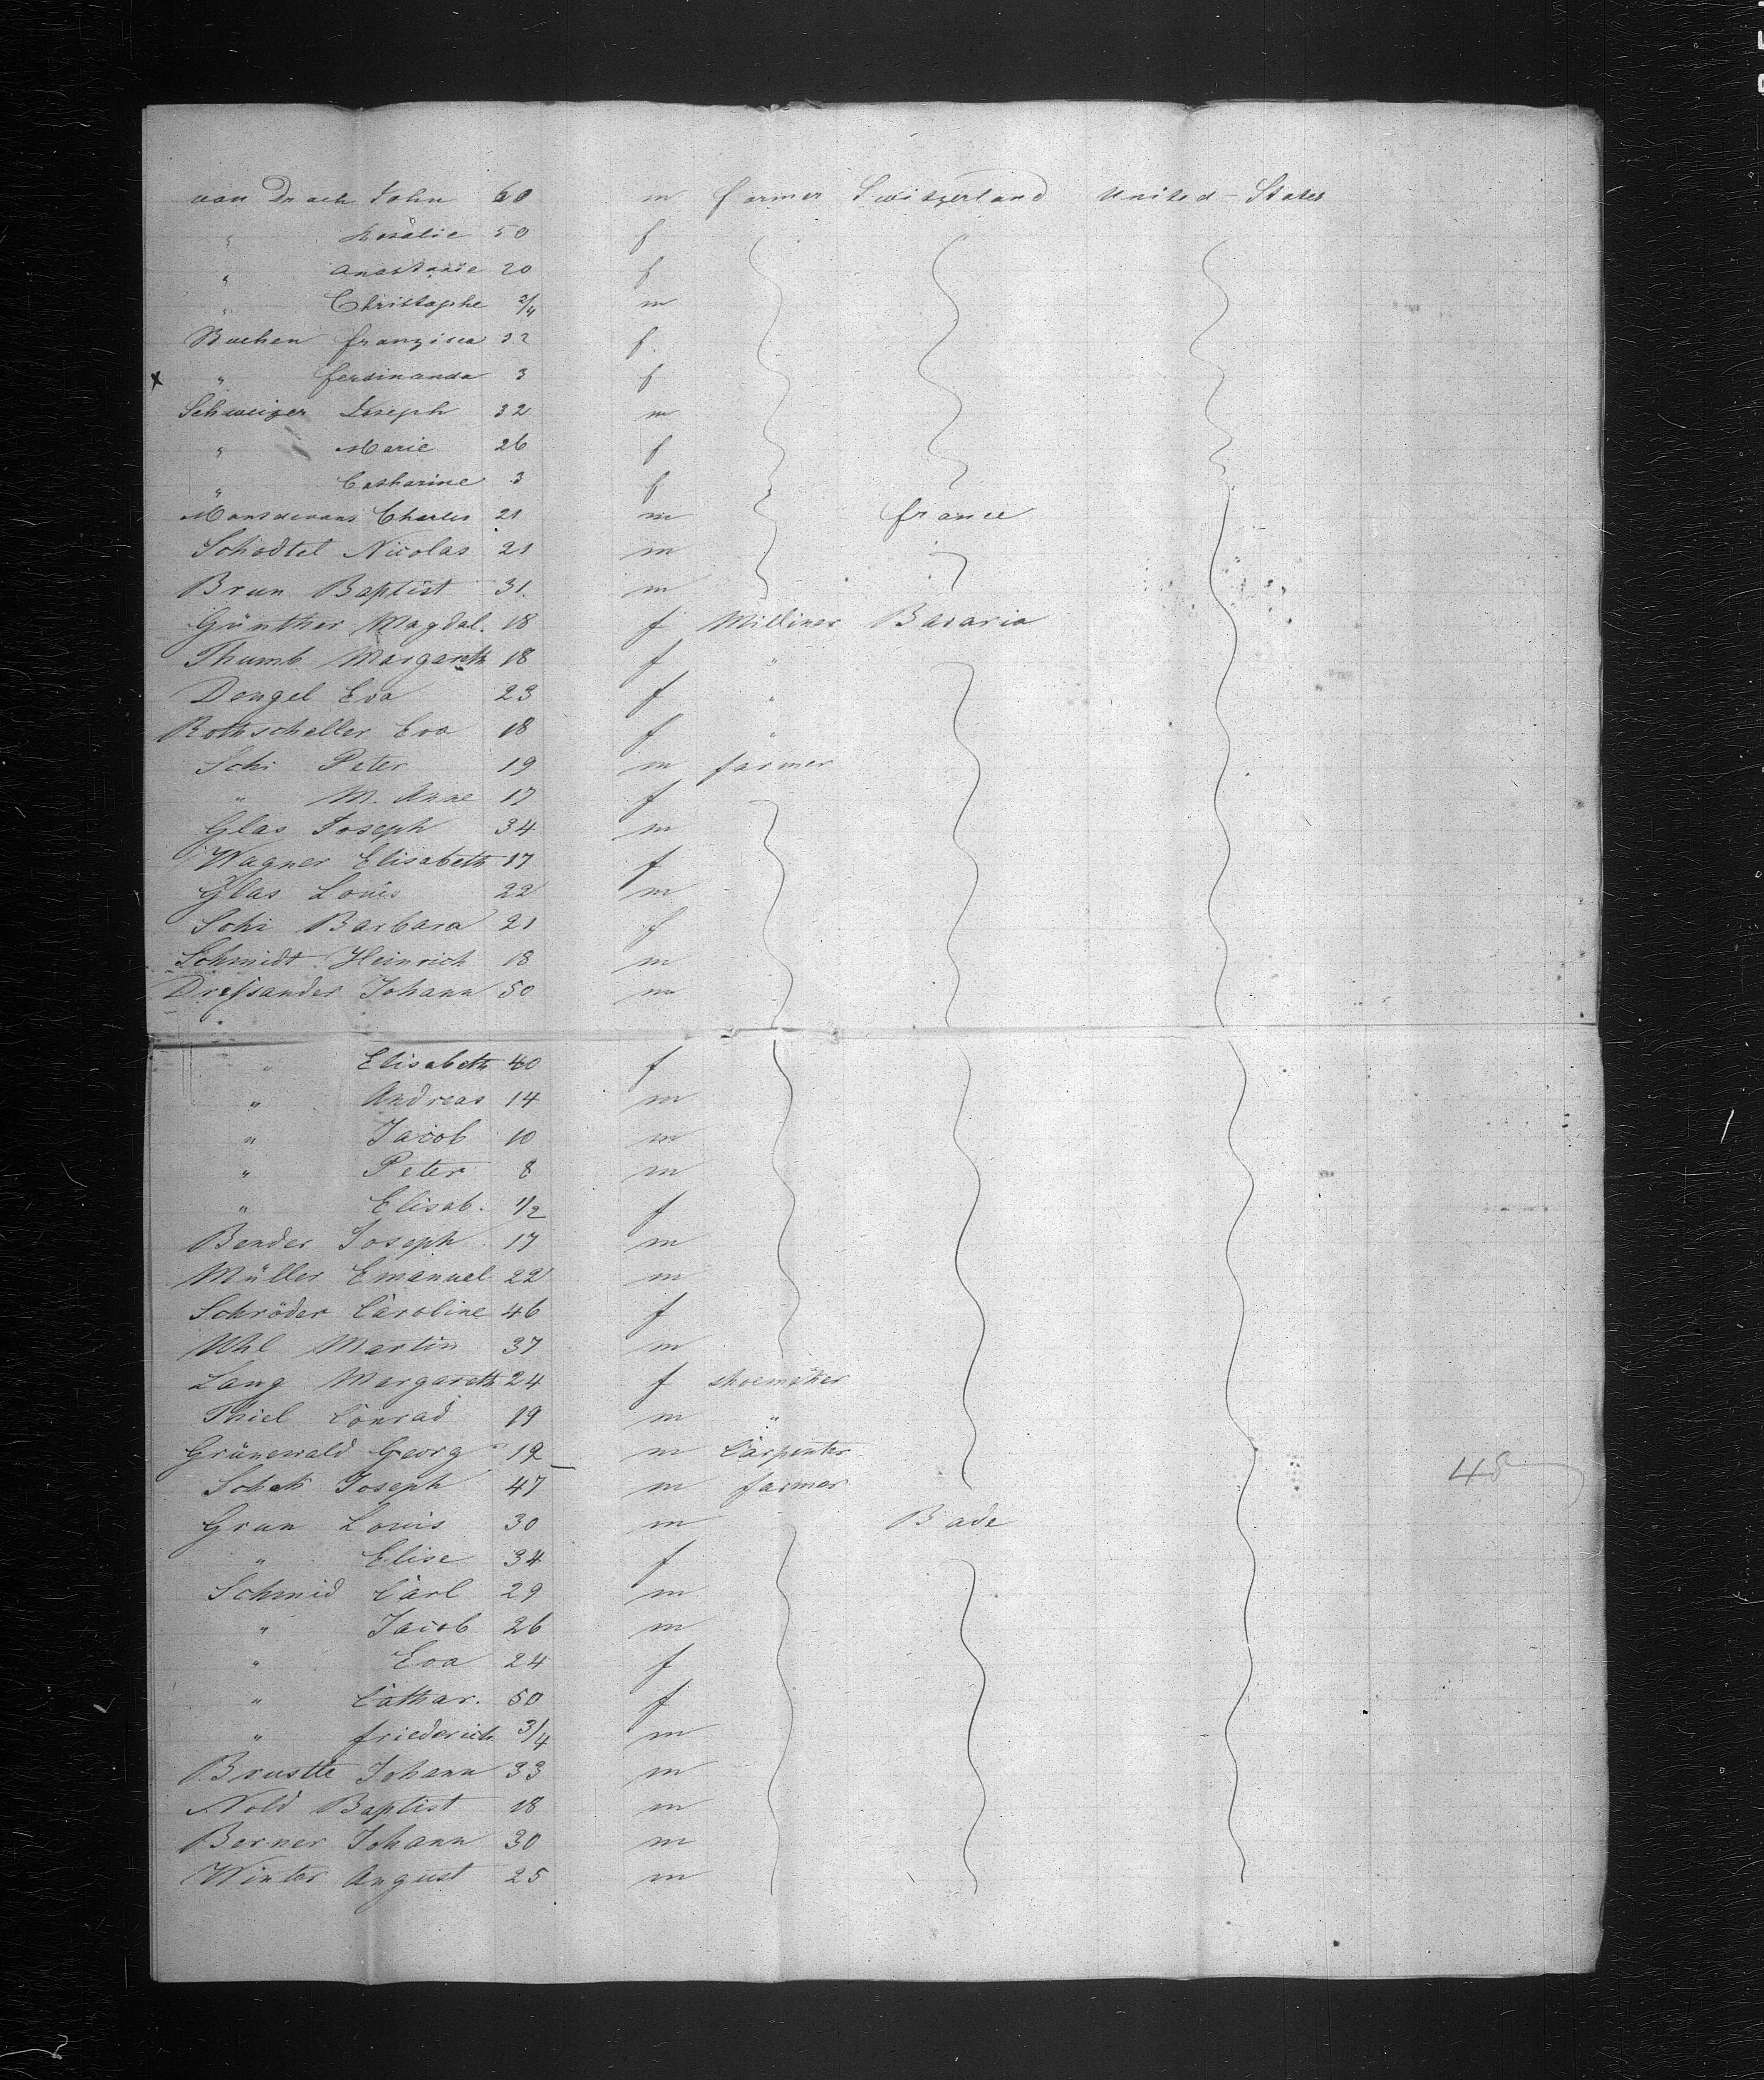 von Drach John 60 m farmer Switzerland United-States
" Rosalie 50 f
" Anastasie 20 f
" Christophe 2/4 m
Buchen franzisca 32 f
x " ferdinanda 3 f
Schweizer Joseph 32 m
" Marie 26 f
" Catharine 3 f
Charles 21 m france
Schodtel Nicolas 21 m
Brun Baptist 31 m
Günther Magdal. 18 f Milliner Bavaria
Thumb Margareth 18 f "
Dengel Eva 23 f "
Rothscheller Eva 18 f "
Schi Peter 19 m farmer
" M. Anne 17 f
Glas Joseph 34 m
Wagner Elisabeth 17 f
Glas Louis 22 m
Schi Barbara 21 f
Schmidt Heinrich 18 m
Dreßander Johann 50 m
" Elisabeth 40 f
" Andreas 14 m
" Jacob 10 m
" Peter 8 m
" Elisab. 1/2 f
Bender Joseph 17 m
Müller Emanuel 22 m
Schröder Caroline 46 f
Uhl Martin 37 m
Lang Margareth 24 f shoemaker
Thiel Conrad 19 m "
Grünewald Georg 19 m Carpenter
Joseph 47 m farmer 48
Grun Louis 30 m Bade
" Elise 34 f
Schmid Carl 29 m
" Jacob 26 m
" Eva 24 f
" Cathar. 50 f
" friederich 3/4 m
Brustle Johann 33 m
Nold Baptist 18 m
Berner Johann 30 m
Winter August 25 m